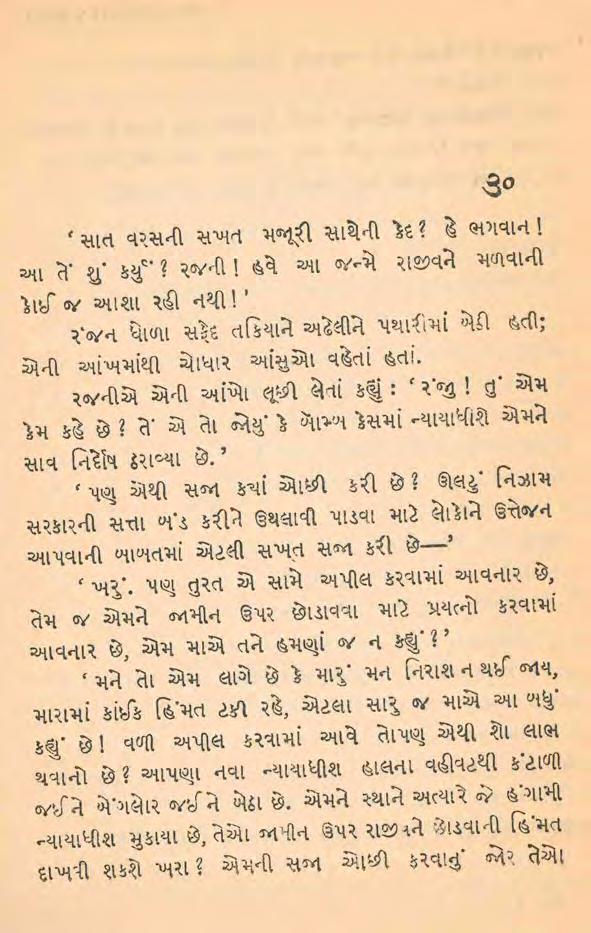 ૩૦
‘સાત વરસની સખત મજૂરી સાથેની કેદ? હે ભગવાન!
આ તેં શું કર્યું? રજની! હવે આ જન્મે રાજીવને મળવાની
કોઈ જ આશા રહી નથી!’
રંજન ધોળા સફેદ તકિયાને અઢેલીને પથારીમાં બેઠી હતી;
એની આંખમાંથી ચોધાર આંસુઓ વહેતાં હતાં.
રજનીએ એની આંખો લૂછી લેતાં કહ્યું : ‘રંજુ! તું એમ
કેમ કહે છે? તેં એ તો જોયું કે બૉમ્બ કેસમાં ન્યાયાધીશે એમને
સાવ નિર્દોષ ઠરાવ્યા છે.’
‘પણ એથી સજા ક્યાં ઓછી કરી છે? ઊલટું નિઝામ
સરકારની સત્તા બંડ કરીને ઉથલાવી પાડવા માટે લોકોને ઉત્તેજન
આપવાની બાબતમાં એટલી સખ્ત સજા કરી છે—’
‘ખરું. પણ તુરત એ સામે અપીલ કરવામાં આવનાર છે,
તેમ જ એમને જામીન ઉપર છોડાવવા માટે પ્રયત્નો કરવામાં
આવનાર છે, એમ માએ તને હમણાં જ ન કહ્યું?’
‘મને તો એમ લાગે છે કે મારું મન નિરાશ ન થઈ જાય,
મારામાં કાંઈક હિંમત ટકી રહે, એટલા સારુ જ માએ આ બધું
કહ્યું છે! વળી અપીલ કરવામાં આવે તોપણ એથી શો લાભ
થવાનો છે? આપણા નવા ન્યાયાધીશ હાલના વહીવટથી કંટાળી
જઈને બેંગલોર જઈને બેઠા છે. એમને સ્થાને અત્યારે જે હંગામી
ન્યાયાધીશ મુકાયા છે, તેઓ જામીન ઉપર રાજીવને છોડવાની હિંમત
દાખવી શકશે ખરા? એમની સજા ઓછી કરવાનું જોર તેઓ